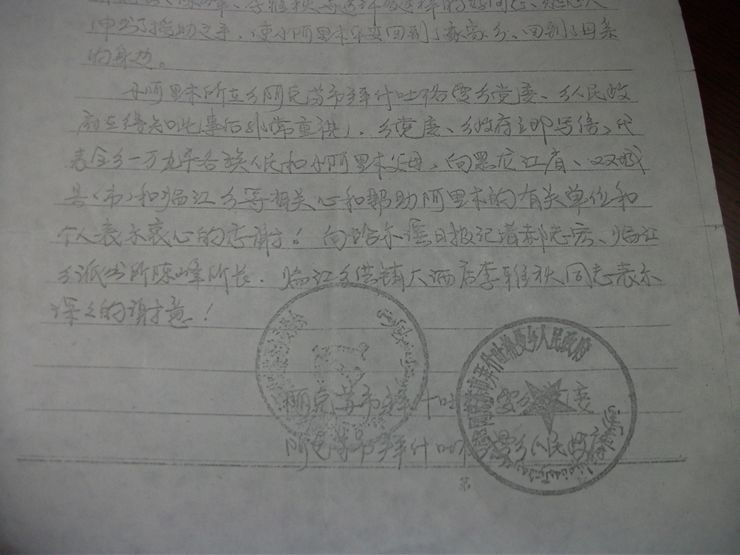 伸出了援助之手,使小阿里木平安回到了家乡、回到了母亲
的身边。
小阿里木所在乡阿克苏市拜什吐格曼乡党委、乡人民政
府在得知此事后非常重视,乡党委、乡政府立即写信,代
表全乡一万九千各族人民和小阿里木父母,向黑龙江省、双城
县(市)和临江乡等相关心和帮助阿里木的有关单位和
个人表示衷心的感谢!向哈尔滨日报记者郝志宏、临江
乡派出所陈峰所长、临江乡集镇大酒店李雅秋同志表示
深深的谢意!
阿克苏市拜什吐格曼乡党委
阿克苏市拜什吐格曼乡人民政府
阿克苏市拜什吐格曼乡人民政府
第